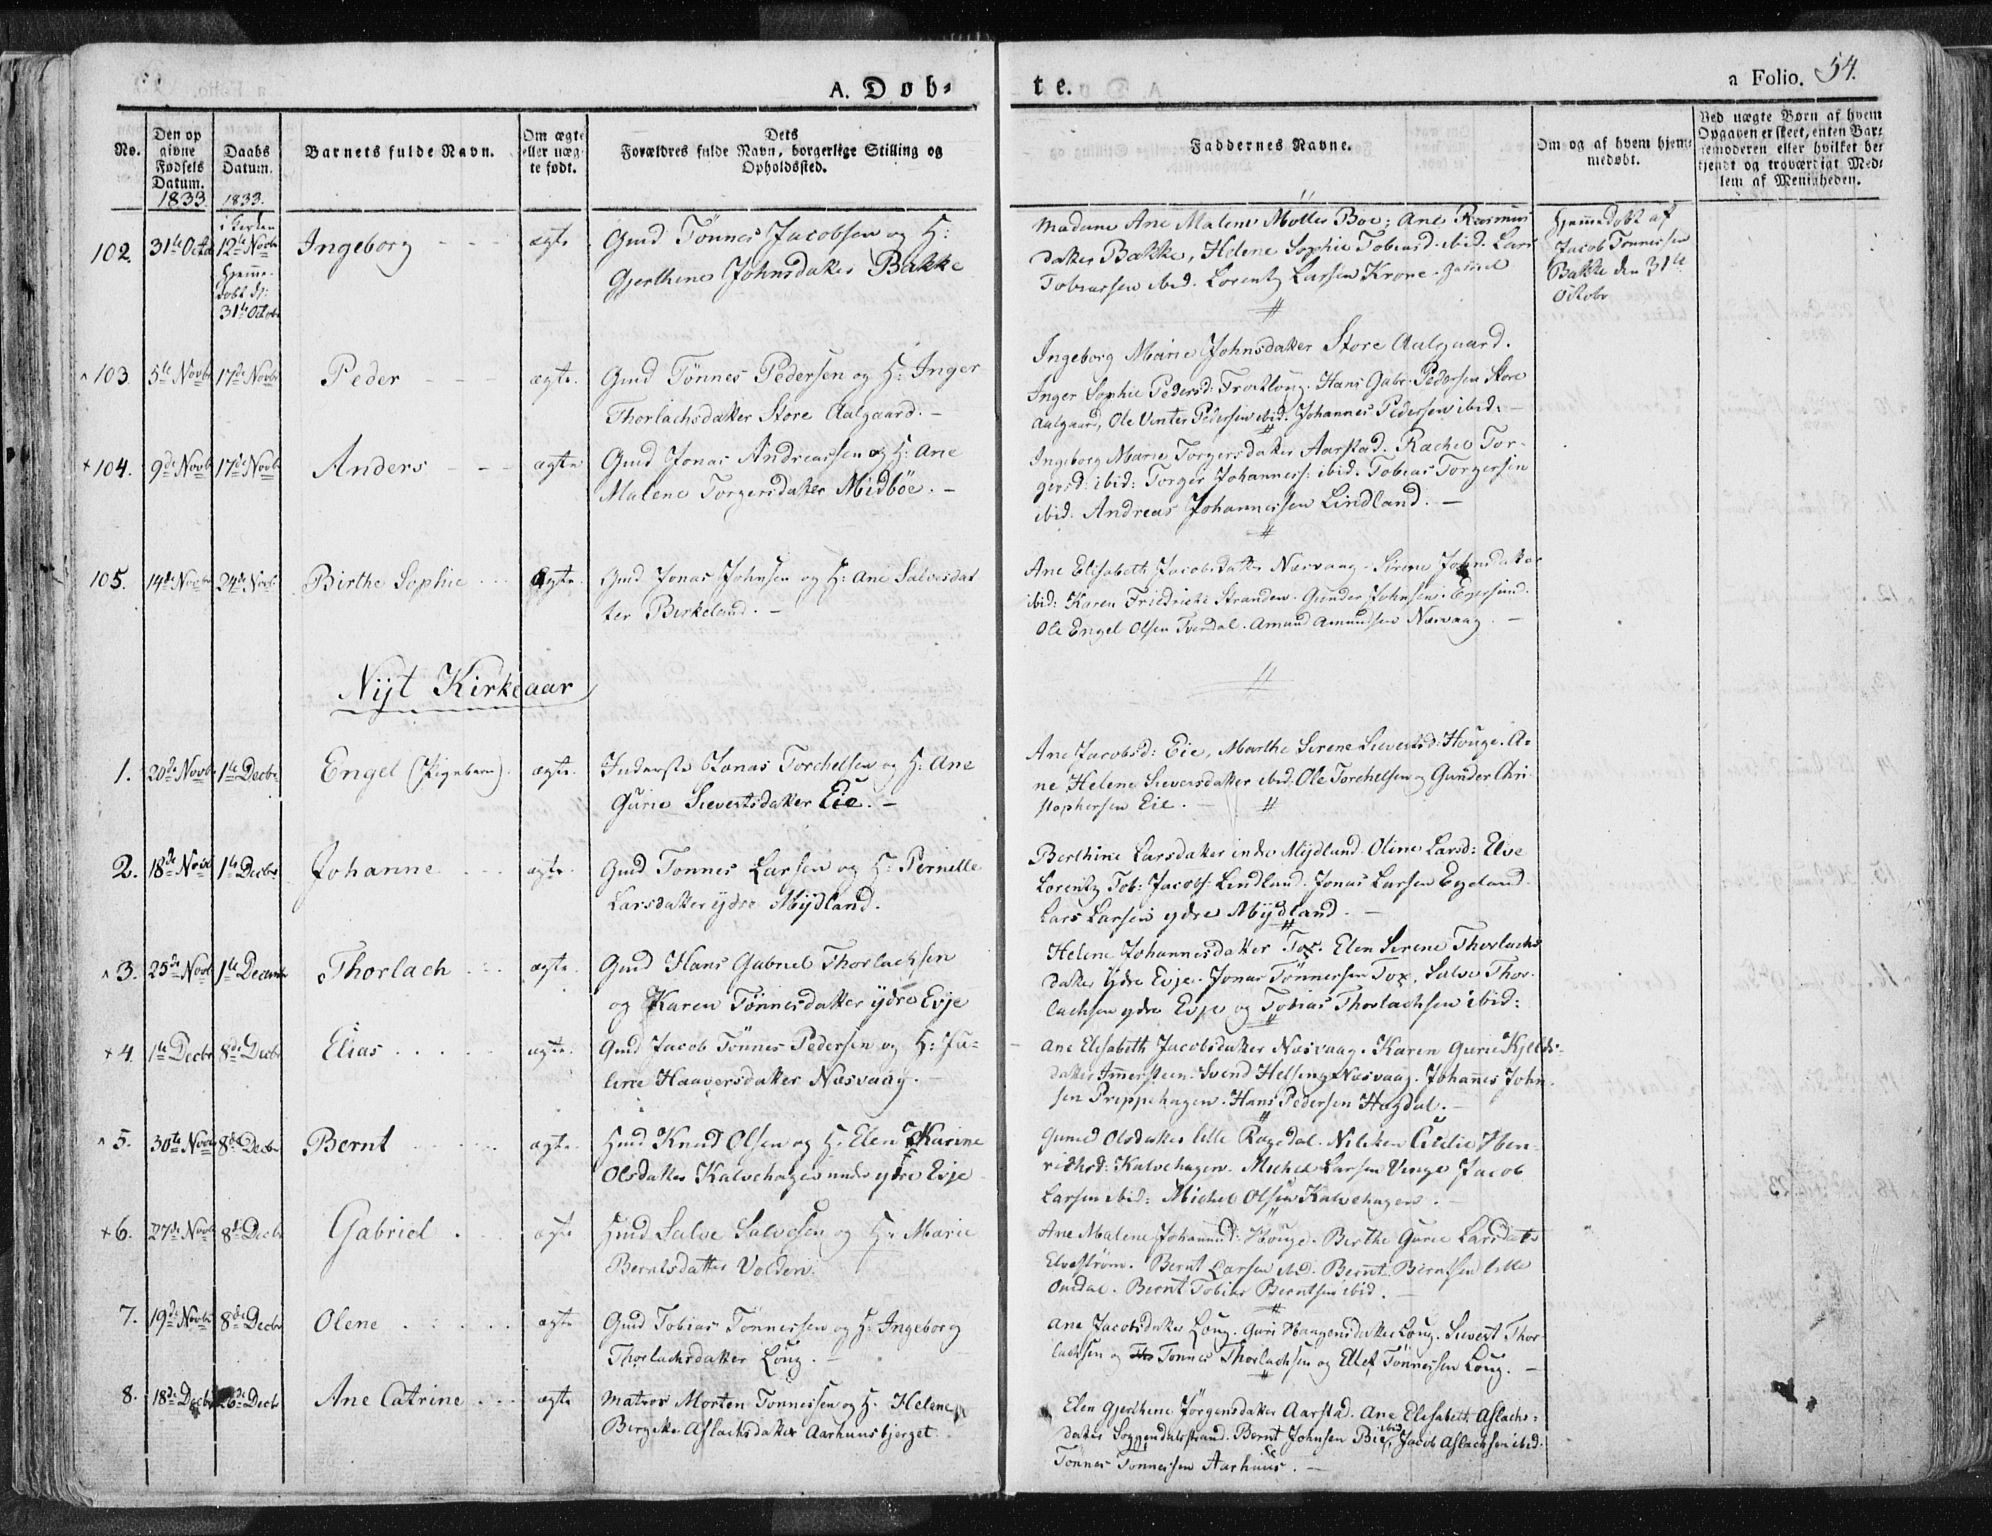 A. Døb-
te.
a Folio. 54.
No.
Den opgivne Fødsels Datum.
1833.
Daabs Datum.
1833.
Barnets fulde Navn.
Om ægte eller uægte født.
Dets
Forældres fulde Navn, borgerlige Stilling og
Opholdssted.
Faddernes Navne.
Om og af hvem hjemmedøbt.
Ved uægte Børn af hvem
Opgaven er skeet, enten Barnemoderen
eller hvilket betjendt
og troværdigt Medlem
af Menigheden.
102. 31te Octob 12te Novb Hjemmedøbt d: 31te Octob Ingeborg ægte
Gmd Tönnes Jacobsen og H:
Gjerthine Johnsdatter Bakke
Madame Ane Malene Moller Boe; Ane Rasmus
datter Bakke, Helene Sophie Tobiasd. ibid. Lars
Tobiassen ibid. Lorentz Larsen Krone.
Hjemmedøbt af
Jacob Tönnessen
Bakke den 31te
October
103 5te Novb 17de Novb Peder ægte.
Gmd Tönnes Pedersen og H: Inger
Thorlachsdatter Store Aalgaard. -
Ingeborg Marie Johnsdatter Store Aalgaard.
Inger Sophie Pedersd: . Hans Gabr. Pedersen Store
Aalgaard, Ole Vinter Pedersen ibid. Johannes Pedersen ibid: -
+ 104. 9de Novb 17de Novb Anders ægte
Gmd Jonas Andreassen og H: Ane
Malene Torgersdatter Midböe. -
Ingeborg Marie Torgersdatter Aarstad. Rachel Tor-
gersd: ibid: Torger Johanness: ibid. Tobias Torgersen
ibid. Andreas Johannessen Lindland. -
105. 14de Novb 24de Novb Birthe Sophie ægte.
Gmd Jonas Johnsen og H: Ane Salvesdat
ter Birkeland. -
Ane Elisabeth Jacobsdatter Næsvaag. Sirene Johnsdatter
ibid: Karen Friedrichs Stranden. Gunder Johnsen. Egersund.
Ole Engel Olsen Tverdal. Amund Amundsen Næsvaag. -
Nijt Kirkeaar
1. 20de Novb 1te Decbr Engel (Pigebarn). ægte.
Inderste Jonas Torchelsen og H: Ane
Gurie Sievertsdatter Eie. -
Ane Jacobsd: Eie, Marthe Serene Sievertsd: Houge. A-
ne Helene Sieversdatter ibid: Ole Torchelsen og Gunder Chri-
stophersen Eie. -
2. 18de Novb 1te Decbr Johanne ægte.
Gmd Tonnes Larsen og H: Pernille
Larsdatter ydre Mijdland.
Berthine Larsdatter indre Mijdland. Oline Larsd: Elve
Lorentz Tob: Jacobs. Lindland. Jonas Larsen Egeland.
Lars Larsen ydre Mijdland. -
3. 25de Novb 1te Decembr Thorlach ægte.
Gmd Hans Gabriel Thorlachsen
og Karen Tönnesdatter ijdre Evje
Helene Johannesdatter Tox. Elen Serene Thorlachs
datter Ydre Evje. Jonas Tönnessen Tox. Salve Thor-
lachsen ydre Evje og Tobias Thorlachsen ibid:
+ 4. 1te Decbr 8de Decbr Elias ægte.
Gmd Jacob Tönnes Pedersen og H: Ju-
line Haaversdatter Næsvaag. -
Ane Elisabeth Jacobsdatter Næsvaag. Karen Gurie Kjelds-
datter Immersteen. Svend Helsing Næsvaag. Johannes John-
sen Prippehagen. Hans Pedersen Hegdal. -
5. 30te Novb 8de Decbr Bernt ægte.
Hmd Knud Olsen og H. Elen Karine
Olsdatter Kalvehagen under ydre Evje
Gurie Olsdatter lille Rægedal. Nilken Cicilie Hen-
richsd: Kalvehagen. Michel Larsen Vinge Jacob
Larsen ibid: Michel Olsen Kalvehagen. -
+ 6. 27de Novb 8de Decbr Gabriel ægte
Hmd Salve Salvesen og H: Marie
Berntsdatter Volden.
Ane Malene Johannesd: Houge. Berthe Gurie Larsdatr
Elvestrøm. Bernt Larsen ibid: Bernt Berntsen lille
Omdal. Bernt Tobias Berntsen ibid. -
7. 19de Novbr 8de Decbr Olene ægte
Gmd Tobias Tönnessen og H: Ingeborg
Thorlachsdatter Loug. -
Ane Jacobsdatter Loug. Guri Haagensdatter Loug. Sievert Thor-
lachsen og Tonnes Thorlachsen og Ellef Tönnessen Loug. -
8. 18de Decbr 26de Decbr Ane Catrine ægte
Matros Morten Tonnessen og H. Helene
Bergitte Aslachsdatter Aarhuusbjerget
Elen Gjerthine Jörgensdatter Aarstad. Ane Elisabeth Aslachs-
datter Soggendalsstrand. Bernt Johnsen Bie, Jacob Aslachsen ibid.
Tönnes Tonnessen Aarhuus. -